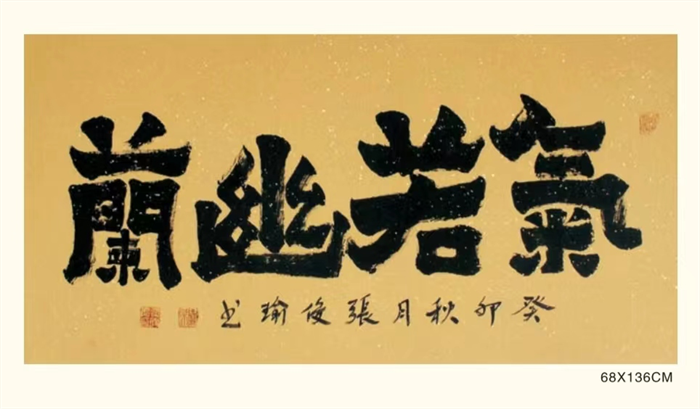 氣若幽蘭
癸卯秋月張俊瑜书
68X136CM